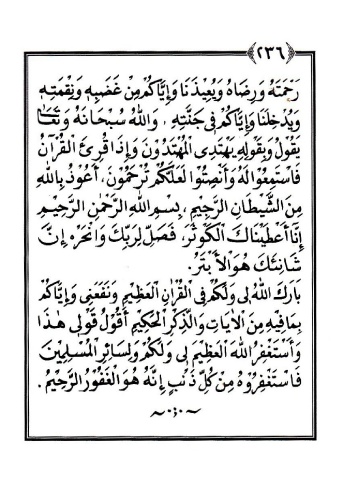 ﴿٢٣٦﴾
رَحْمَتَهُ وَرِضَاهُ وَيُعِيْذَنَا وَإِيَّاكُمْ مِنْ غَضَبِهِ وَنِقْمَتِهِ
وَيُدْخِلَنَا وَإِيَّاكُمْ فِى جَنَّتِهِ . وَاللهُ سُبْحَانَهُ وَتَعَالٰى
يَقُوْلُ وَبِقَوْلِهِ يَهْتَدِى الْمُهْتَدُوْنَ وَإِذَا قُرِئَ الْقُرْآنُ
فَاسْتَمِعُوْا لَهُ وَأَنْصِتُوْا لَعَلَّكُمْ تُرْحَمُوْنَ . أَعُوْذُ بِاللهِ
مِنَ الشَّيْطَانِ الرَّجِيْمِ . بِسْمِ اللهِ الرَّحْمٰنِ الرَّحِيْمِ
إِنَّا أَعْطَيْنَاكَ الْكَوْثَرَ . فَصَلِّ لِرَبِّكَ وَانْحَرْ . إِنَّ
شَانِئَكَ هُوَ الْأَبْتَرُ .
بَارَكَ اللهُ لِى وَلَكُمْ فِى الْقُرْآنِ الْعَظِيْمِ وَنَفَعَنِى وَإِيَّاكُمْ
بِمَا فِيْهِ مِنَ الْآيَاتِ وَالذِّكْرِ الْحَكِيْمِ أَقُوْلُ قَوْلِى هٰذَا
وَأَسْتَغْفِرُ اللهَ الْعَظِيْمَ لِى وَلَكُمْ وَلِسَائِرِ الْمُسْلِمِيْنَ
فَاسْتَغْفِرُوْهُ مِنْ كُلِّ ذَنْبٍ إِنَّهُ هُوَ الْغَفُوْرُ الرَّحِيْمُ .